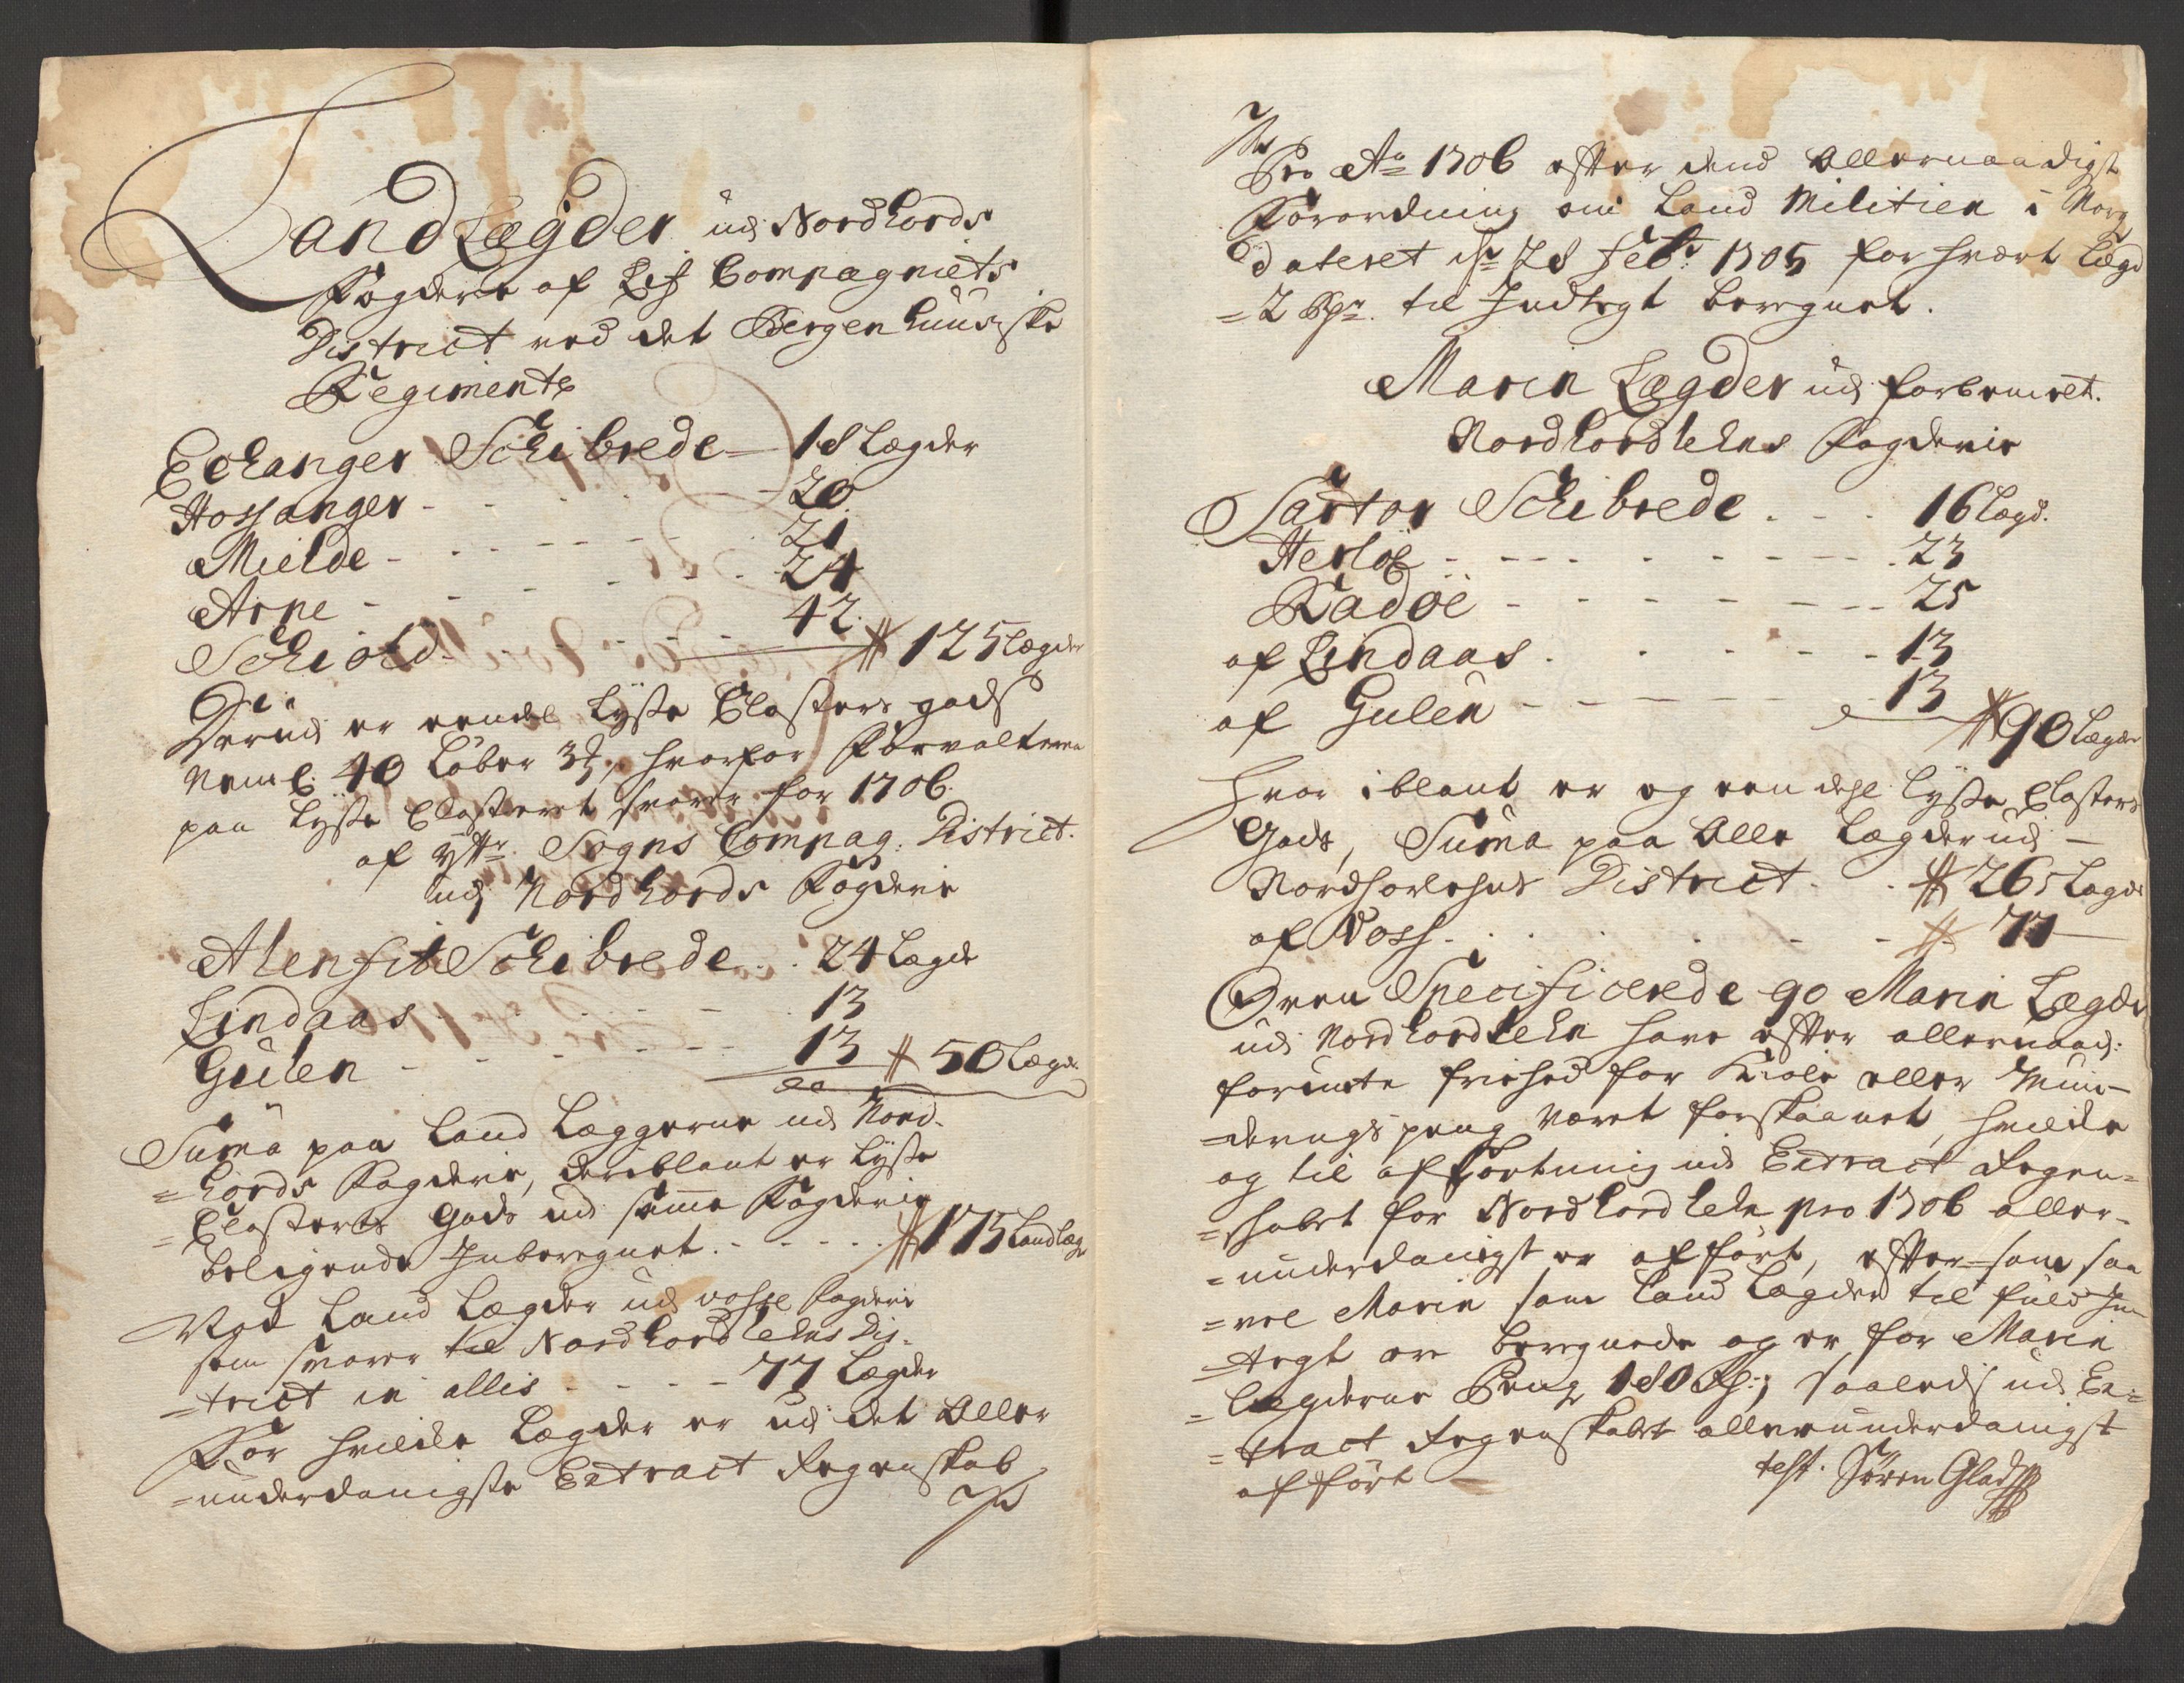 Land Lægder udj Nordhords
Fogderie af Lif Compagniets
District ved det Bergenhuusiske
Regimente
Echanger Schibrede – 18 Lægder
Hossanger - - - - 20
Mielde - - - - - 21
Arne - - - - - 24
Schiold - - - - - 42. # 125 Lægder
Derudj er eendel Lyste Closters gods
Neml: 40 Løber 3 , hvorfor Forvalteren
paa Lyste Closteret svarer for 1706.
af ytter Sogns Compag: District.
udj Nordhords Fogderie
Alenfit Schibrede . . 24 Lægde
Lindaas - - - - 13
Gulen - - - - - 13 # 50 Lægd:
Suma paa Land Læggerne udj Nord-
=hords Fogderie, deriblant er Lyste
=Closters Gods udj samme Fogderie
beligende Jnberegnet. - - - - # 175 Land læg
Nok Land Lægder udj vosse Fogderie
som svarer til Nordhordlehns Dis-
=trict in allis - - - - 77 Lægder
For hvilke Lægder er udj det Aller
=underdanigste Extract Regenskab
Pro Ao 1706 efter dend Allernaadigst
Forordning om Land Militien i Norg
dateret d 28 Febr: 1705 for hvert Lægd
=2 Rdr. til Jndtegt beregnet.
Marin Lægder udj forbemelt.
Nordhordlehns Fogderie
Sartor Schibrede . - - 16 Lægd.
Herløe - - - - - - - 23
Radøe - - - - - - - 25
af Lindaas . - - - - 13
af Gulen - - - - - 13 # 90 Lægder
Hvor iblant er og een deel Lyste Closters
Gods, Suma paa Alle Lægder udj –
Nordhorlehns District. . # 265 Lægde
af Voss . - - - - - # 77 –
Oven Specificerede 90 Marin Lægder
udj Nordhordlehn have efter allernaad:
forundte friehed for Kiole eller Mun-
=derings peng været forskaanet, hvilke
og til afkortning udj Extract Regen-
=skabet for Nordhordlehn pro 1706 aller-
=underdanigst er afført, eftersom saa
=vel Marin som Land Lægder til fuld Jn
=tegt ere beregnede og er for Marin
=Lægderne Peng 180 Rdr:, saaledes udj Ex=
=tract Regenskabet allerunderdanigst
afført –
test. Søren Glad